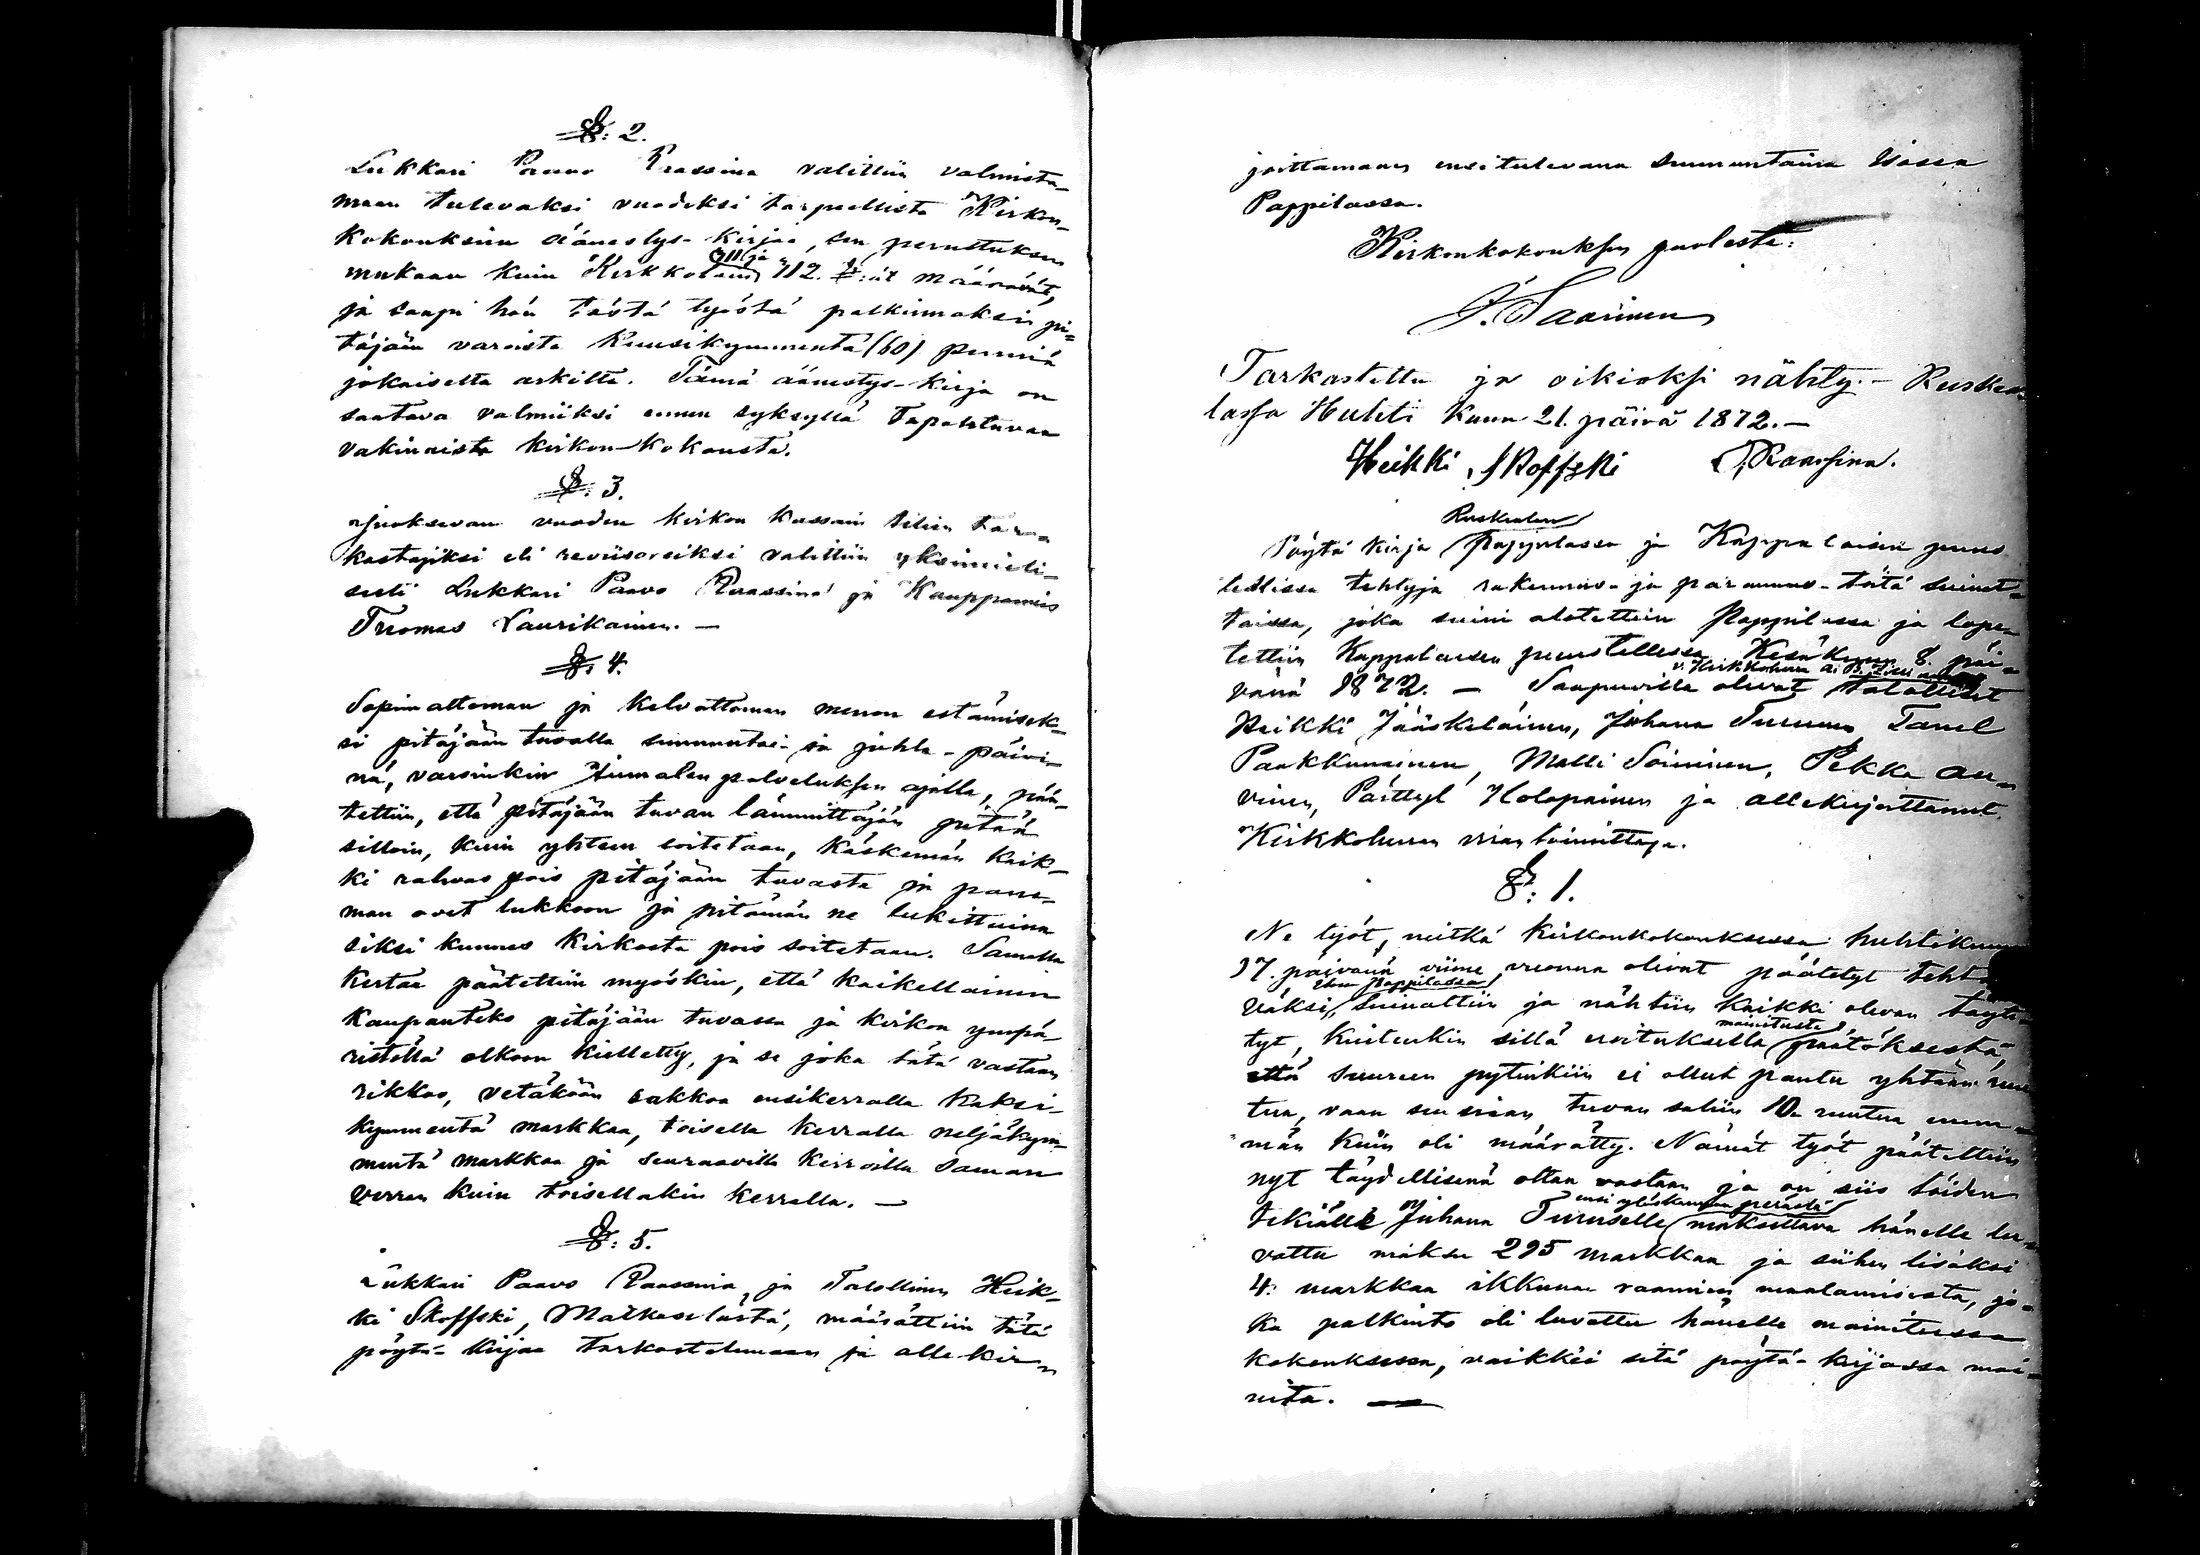 §: 2.
Lukkari Paavo Raassina valittiin valmista-
maan tulevaksi vuodeksi tarpeellista Kirkon-
kokouksiin äänestys-kirjaa, sen perustuksen
311 ja
mukaan kuin Kirkkolain 312. §:ät määräävät,
ja saapi hän tästä työstä palkinnoksi pi-
täjään varoista Kuusikymmentä (60) penniä
jokaiselta arkilta. Tämä äänestys-kirja on
saatava valmiiksi ennen syksyllä tapahtuvaa
vakinaista kirkon-kokousta.
§: 3.
Juoksevan vuoden kirkon kassain tilien tar-
kastajiksi eli reviisoreiksi valittiin yksimieli-
sesti Lukkari Paavo Raassina ja Kauppamies
Tuomas Laurikainen. —
§: 4.
Sopimattoman ja kelvottoman menon estämisek-
si pitäjään tuvalla sunnuntai- ja juhla-päivi-
nä, varsinkin Jumalan palveluksen ajalla, pää-
tettiin, että pitäjään tuvan lämmittäjän pitää
silloin, kuin yhteen soitetaan, käskemän kaik-
ki rahvas pois pitäjään tuvasta ja pane-
man ovet lukkoon ja pitämän ne lukittuina
siksi kunnes kirkosta pois soitetaan. Samalla
kertaa päätettiin myöskin, että kaikellainen
kaupanteko pitäjään tuvassa ja kirkon ympä-
ristöllä olkoon kielletty, ja se joka tätä vastaan
rikkoo, vetäköön sakkoa ensikerralla kaksi-
kymmentä markkaa, toisella kerralla neljäkym-
mentä markkaa ja seuraavilla kerroilla saman
verran kuin toisellakin kerralla. —
§: 5.
Lukkari Paavo Raassina, ja Talollinen Heik-
ki Skoffski, Matkaselästä, määrättiin tätä
pöytä-kirjaa tarkastelemaan ja allekir-
joittamaan ensitulevana sunnuntaina Isossa
Pappilassa.
Kirkonkokouksen puolesta:
J. Saarinen
Tarkastettu ja oikiaksi nähty. – Ruskea-
lassa Huhti Kuun 21. päivä 1872. —
Heikki Skoffski P. Raassina.
Ruskealan
Pöytä kirja Pappilassa ja Kappalaisen puus-
tellissa tehtyjä rakennus- ja parannus-töitä
taissa, joka alotettiin Pappilassa ja lope-
tettiin Kappalaisen puustellissa Kesäkuun 8. päi-
v. Kirkkoherra
vänä 1872. — Saapuvilla olivat Talolliset
Heikki Jääskeläinen, Juhana Turunen, Tanel
Paakkunainen, Matti Soininen, Pekka Au-
vinen, Pärttyl Holopainen ja allekirjoittanut
Kirkkoherran viran toimittaja.
§: 1.
Ne työt, mitkä kirkonkokouksessa huhtikuun
17. päivänä viime vuonna olivat päätetyt teht-
Pappilassa
väksi, ja nähtiin kaikki olevan täyte-
mainitusta
tyt, kuitenkin sillä eroituksella päätöksestä,
että suureen pytinkiin ei ollut pantu yhtään ruu-
tua, vaan sen sijaan tuvan saliin 10 ruutua enem-
män kuin oli määrätty. Nämät työt päätettiin
nyt täydellisenä ottaa vastaan ja on siis töiden
ensi ylöskannon perästä
tekiälle Juhana Turuselle maksettava hänelle lu-
vattu maksu 295 markkaa ja siihen lisäksi
4 markkaa ikkunan raamien maalamisesta, jo-
ka palkinto oli luvattu hänelle mainitussa
kokouksessa, vaikk'ei sitä pöytä-kirjassa mai-
nita. —